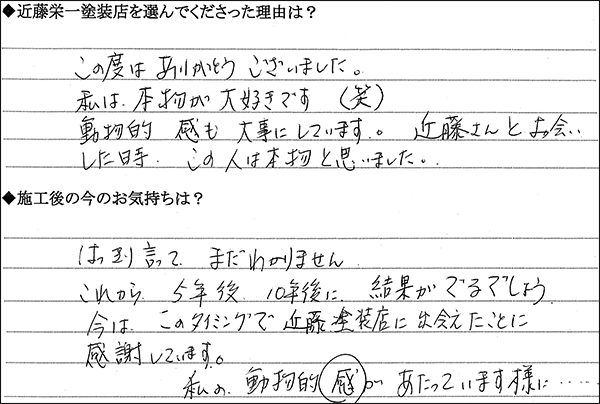 ◆近藤栄一塗装店を選んでくださった理由は？
この度は ありがとう ございました。
私は、本物が 大好きです (笑)
動物的 感も 大事にしています。 近藤さんと お会い
した時、この人は本物と思いました。
◆施工後の今のお気持ちは？
はっきり言って まだわかりません
これから、5年後、10年後に、結果が でるでしょう
今は、このタイミングで 近藤塗装店に出会えたことに
感謝しています。
私の、動物的 感が あたっています様に‥‥‥